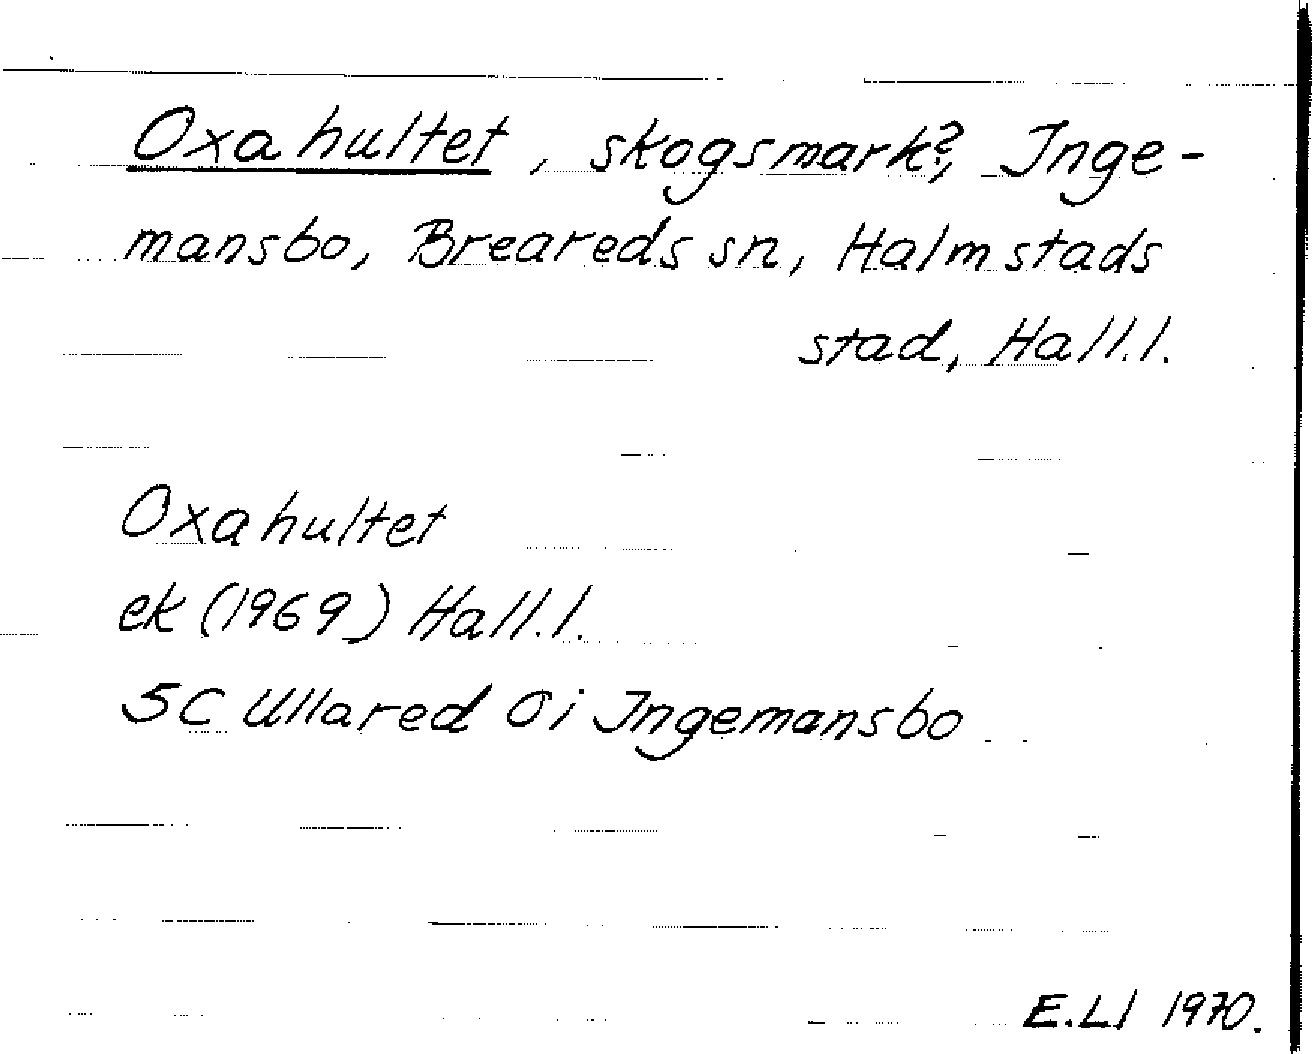 Oxahultet, skogsmark?, Inge-
mansbo, Breareds sn, Halmstads
stad, Hall.l.
Oxahultet
ek (1969) Hall.l.
5C Ullared 0 i Ingemansbo
E.Ll 1970.